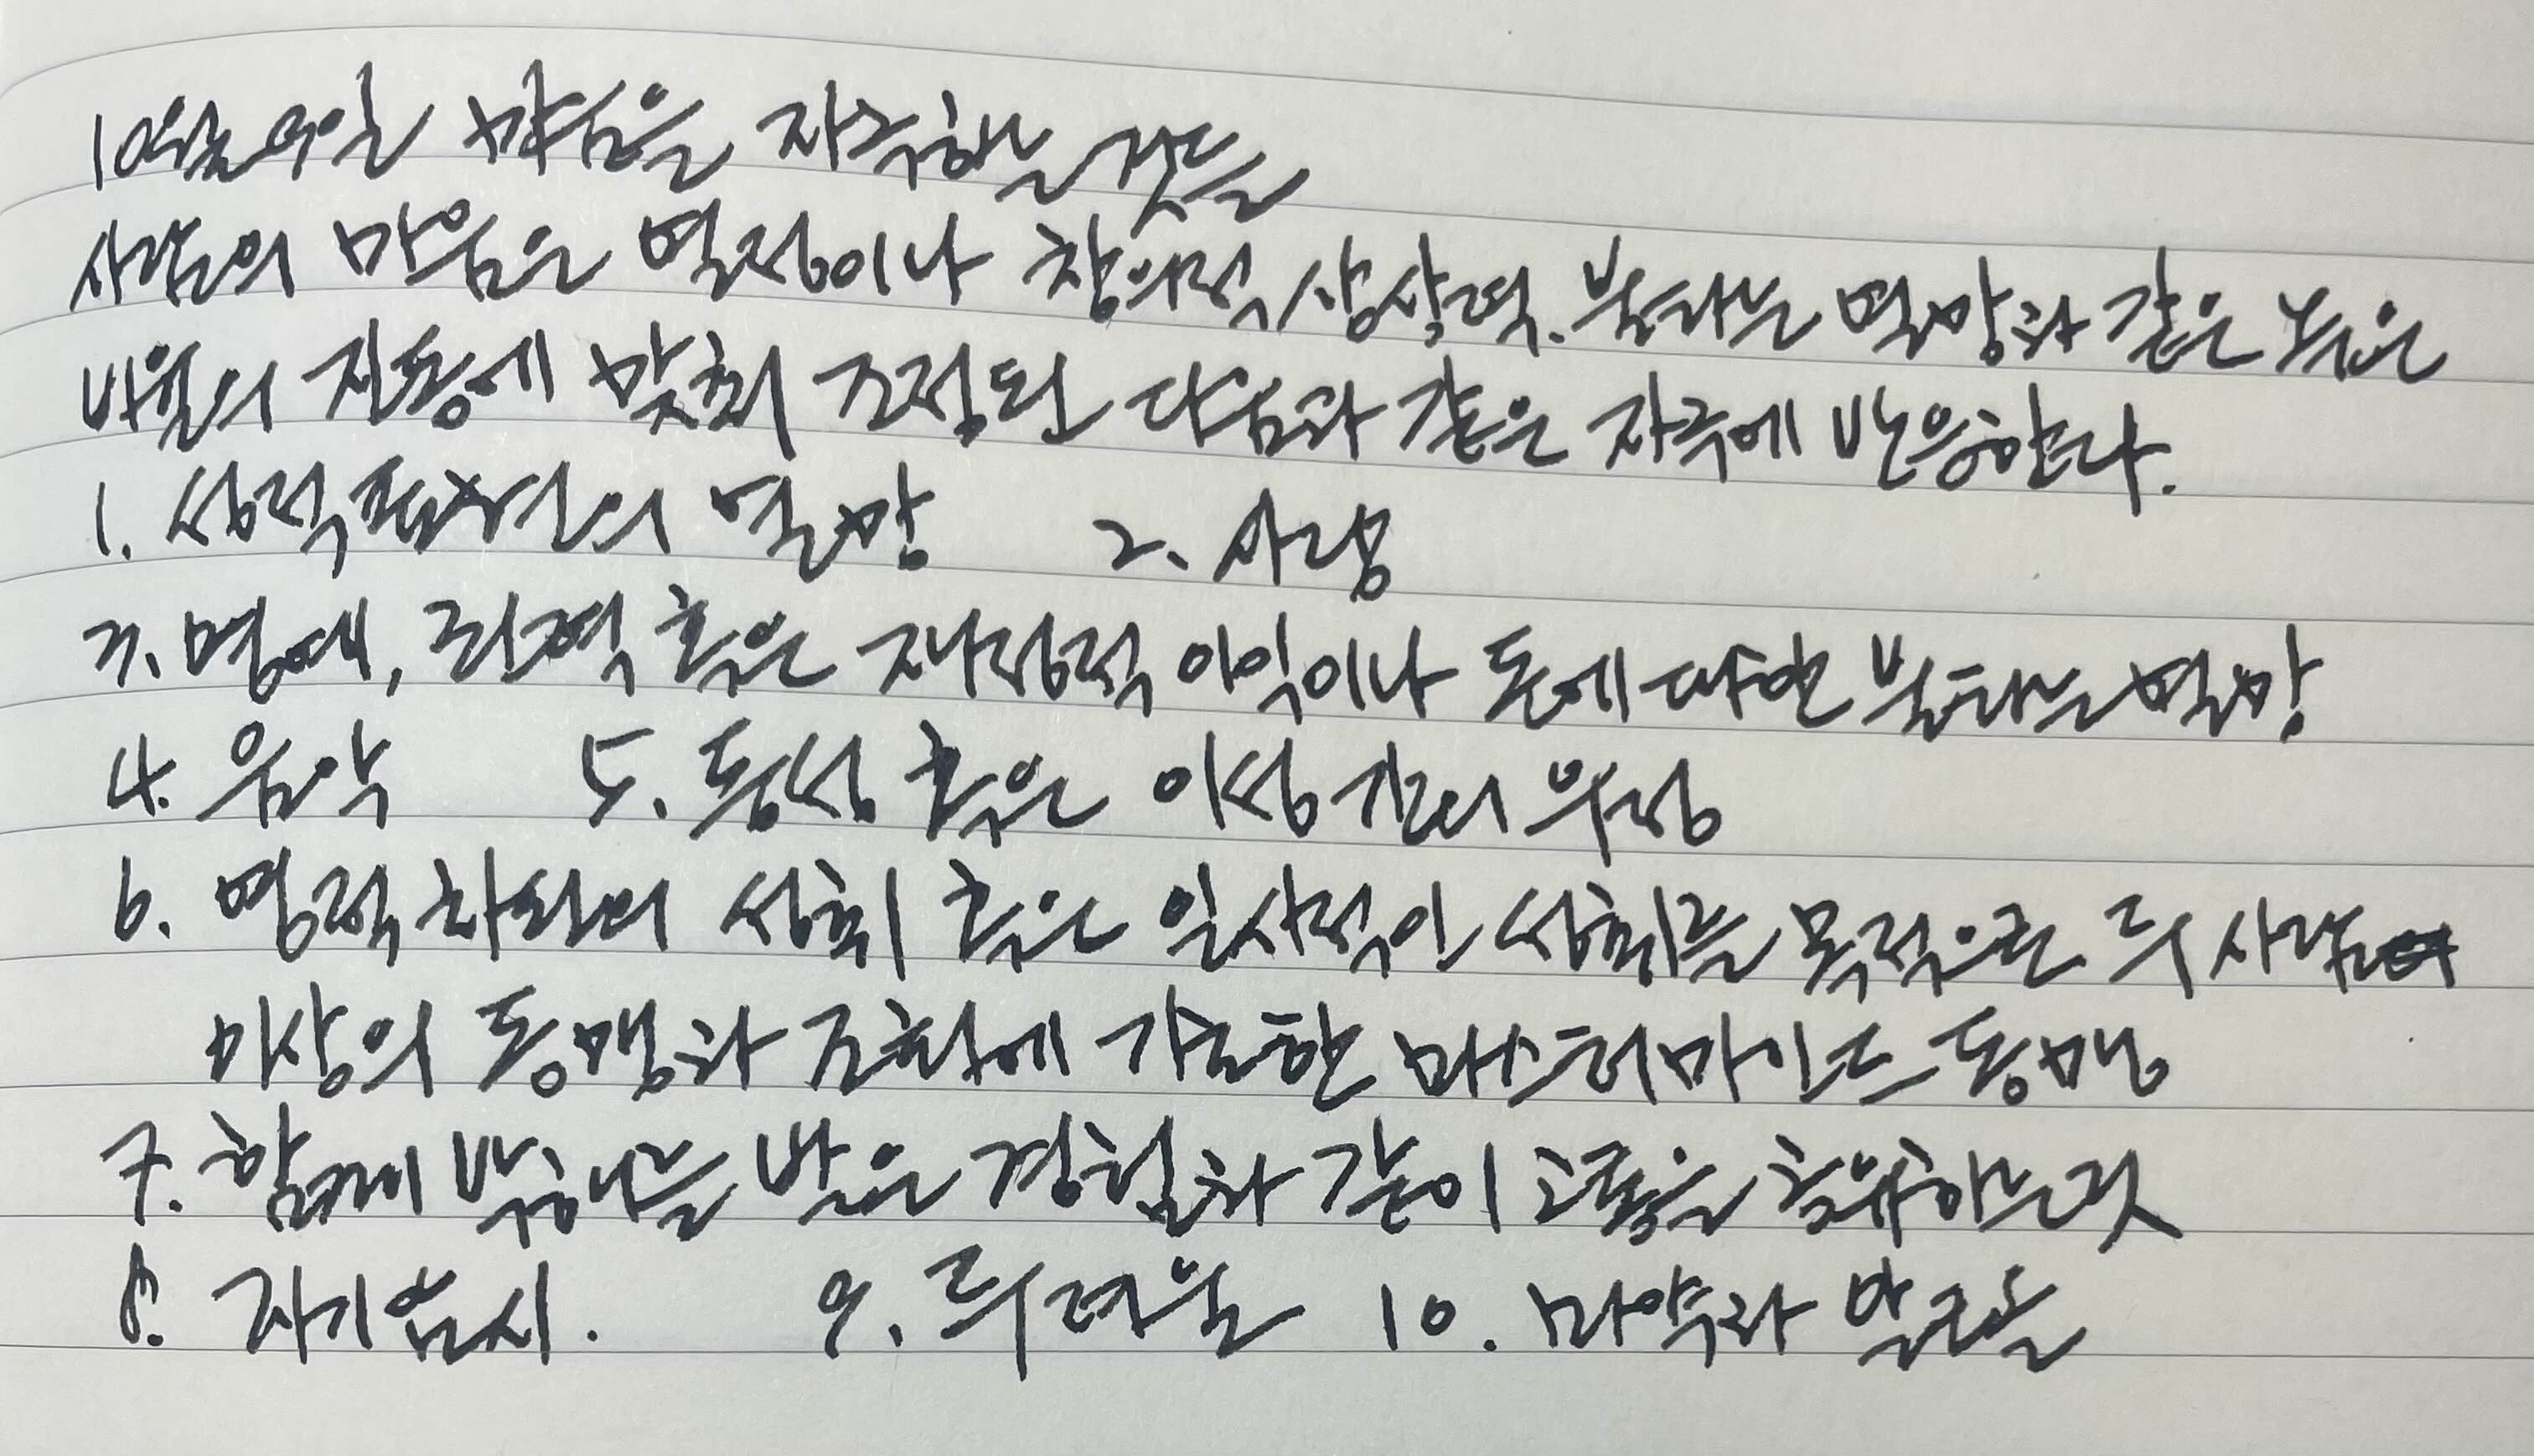 10월 31일 마음을 자극하는 것들
사람의 마음은 열정이나 창의적 상상력. 불타는 열망과 같은 높은
비율의 진동에 맞춰 조정된 다음과 같은 자극에 반응한다.
1. 성적 표현의 열망 2. 사랑
3. 명예, 권력 혹은 재정적 이익이나 돈에 대한 불타는 열망
4. 음악 5. 동성 혹은 이성 간의 우정
6. 영적 차원의 성취 혹은 일시적인 성취를 목적으로 두 사람
이상의 동맹과 조화에 기초한 마스터마인드 동맹
7. 함께 박해를 받은 경험과 같이 고통을 공유하는 것
8. 자기암시. 9. 두려움 10. 마약과 알코올